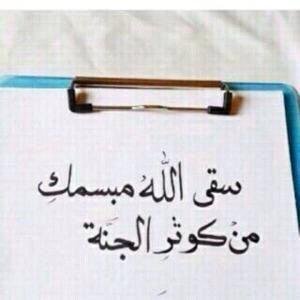 سقى اللهُ مبسمكِ
من كوثرِ الجنة